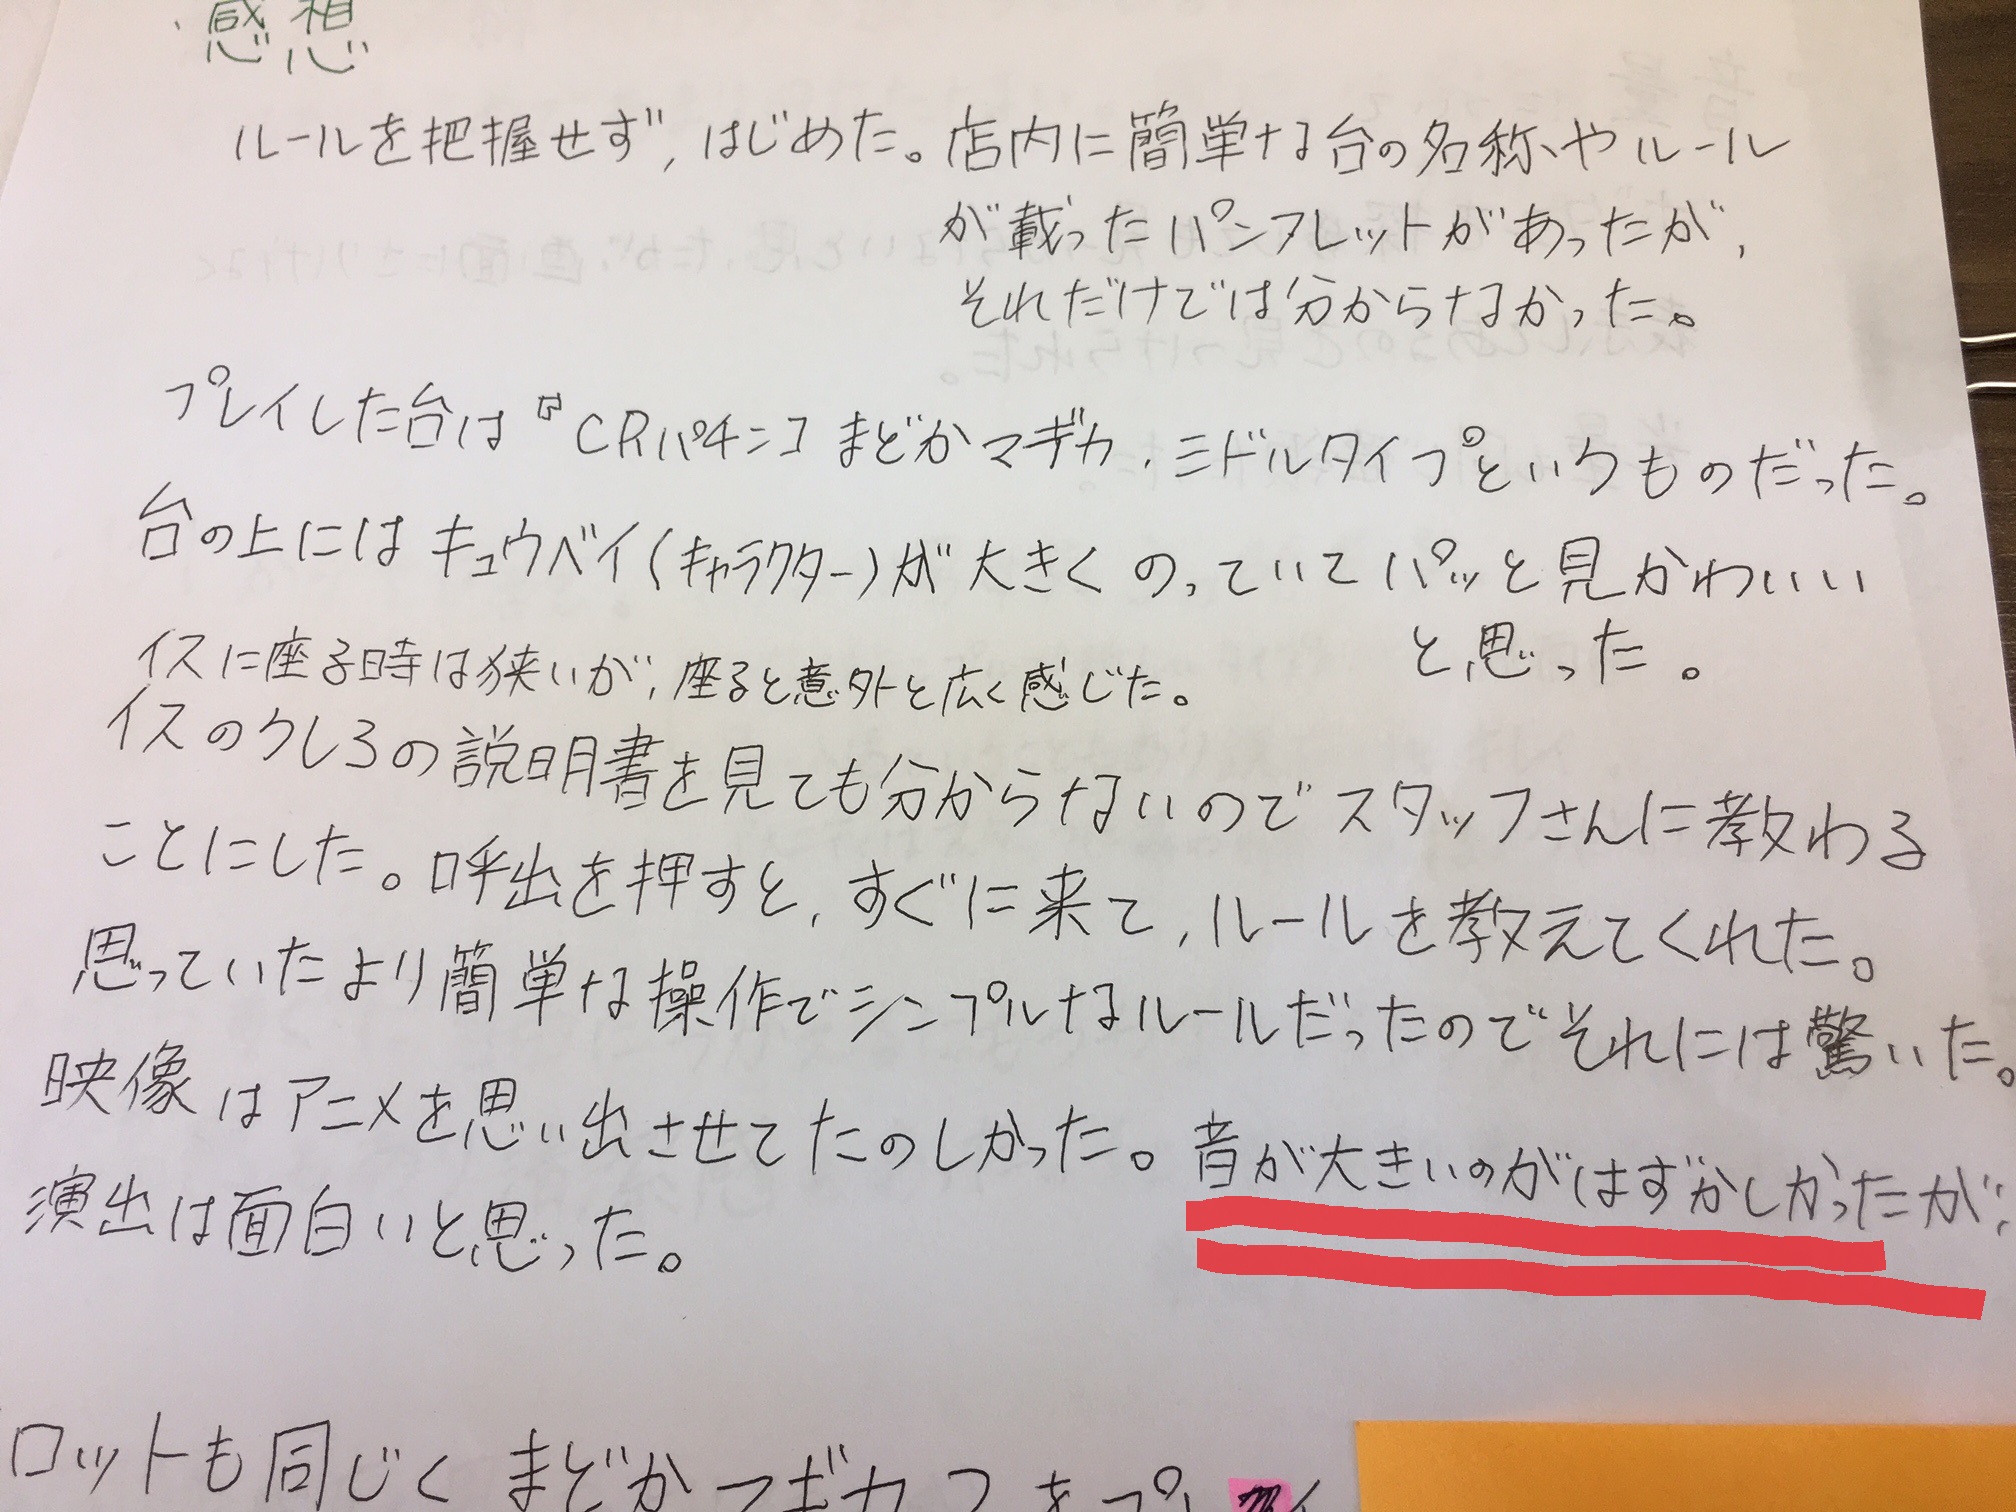 感想
ルールを把握せず、はじめた。店内に簡単な台の名称やルール
が載ったパンフレットがあったが、
それだけでは分からなかった。
プレイした台は『CRパチンコまどかマギカ.ミドルタイプというものだった。
台の上にはキュウベイ(キャラクター)が大きくのっていてパッと見かわいい
と思った。
イスに座る時は狭いが、座ると意外と広く感じた。
イスのうしろの説明書を見ても分からないのでスタッフさんに教わる
ことにした。呼出を押すと、すぐに来て、ルールを教えてくれた。
思っていたより簡単な操作でシンプルなルールだったのでそれには驚いた。
映像はアニメを思い出させてたのしかった。音が大きいのがはずかしかったが、
演出は面白いと思った。
ロットも同じくまどかマギカ